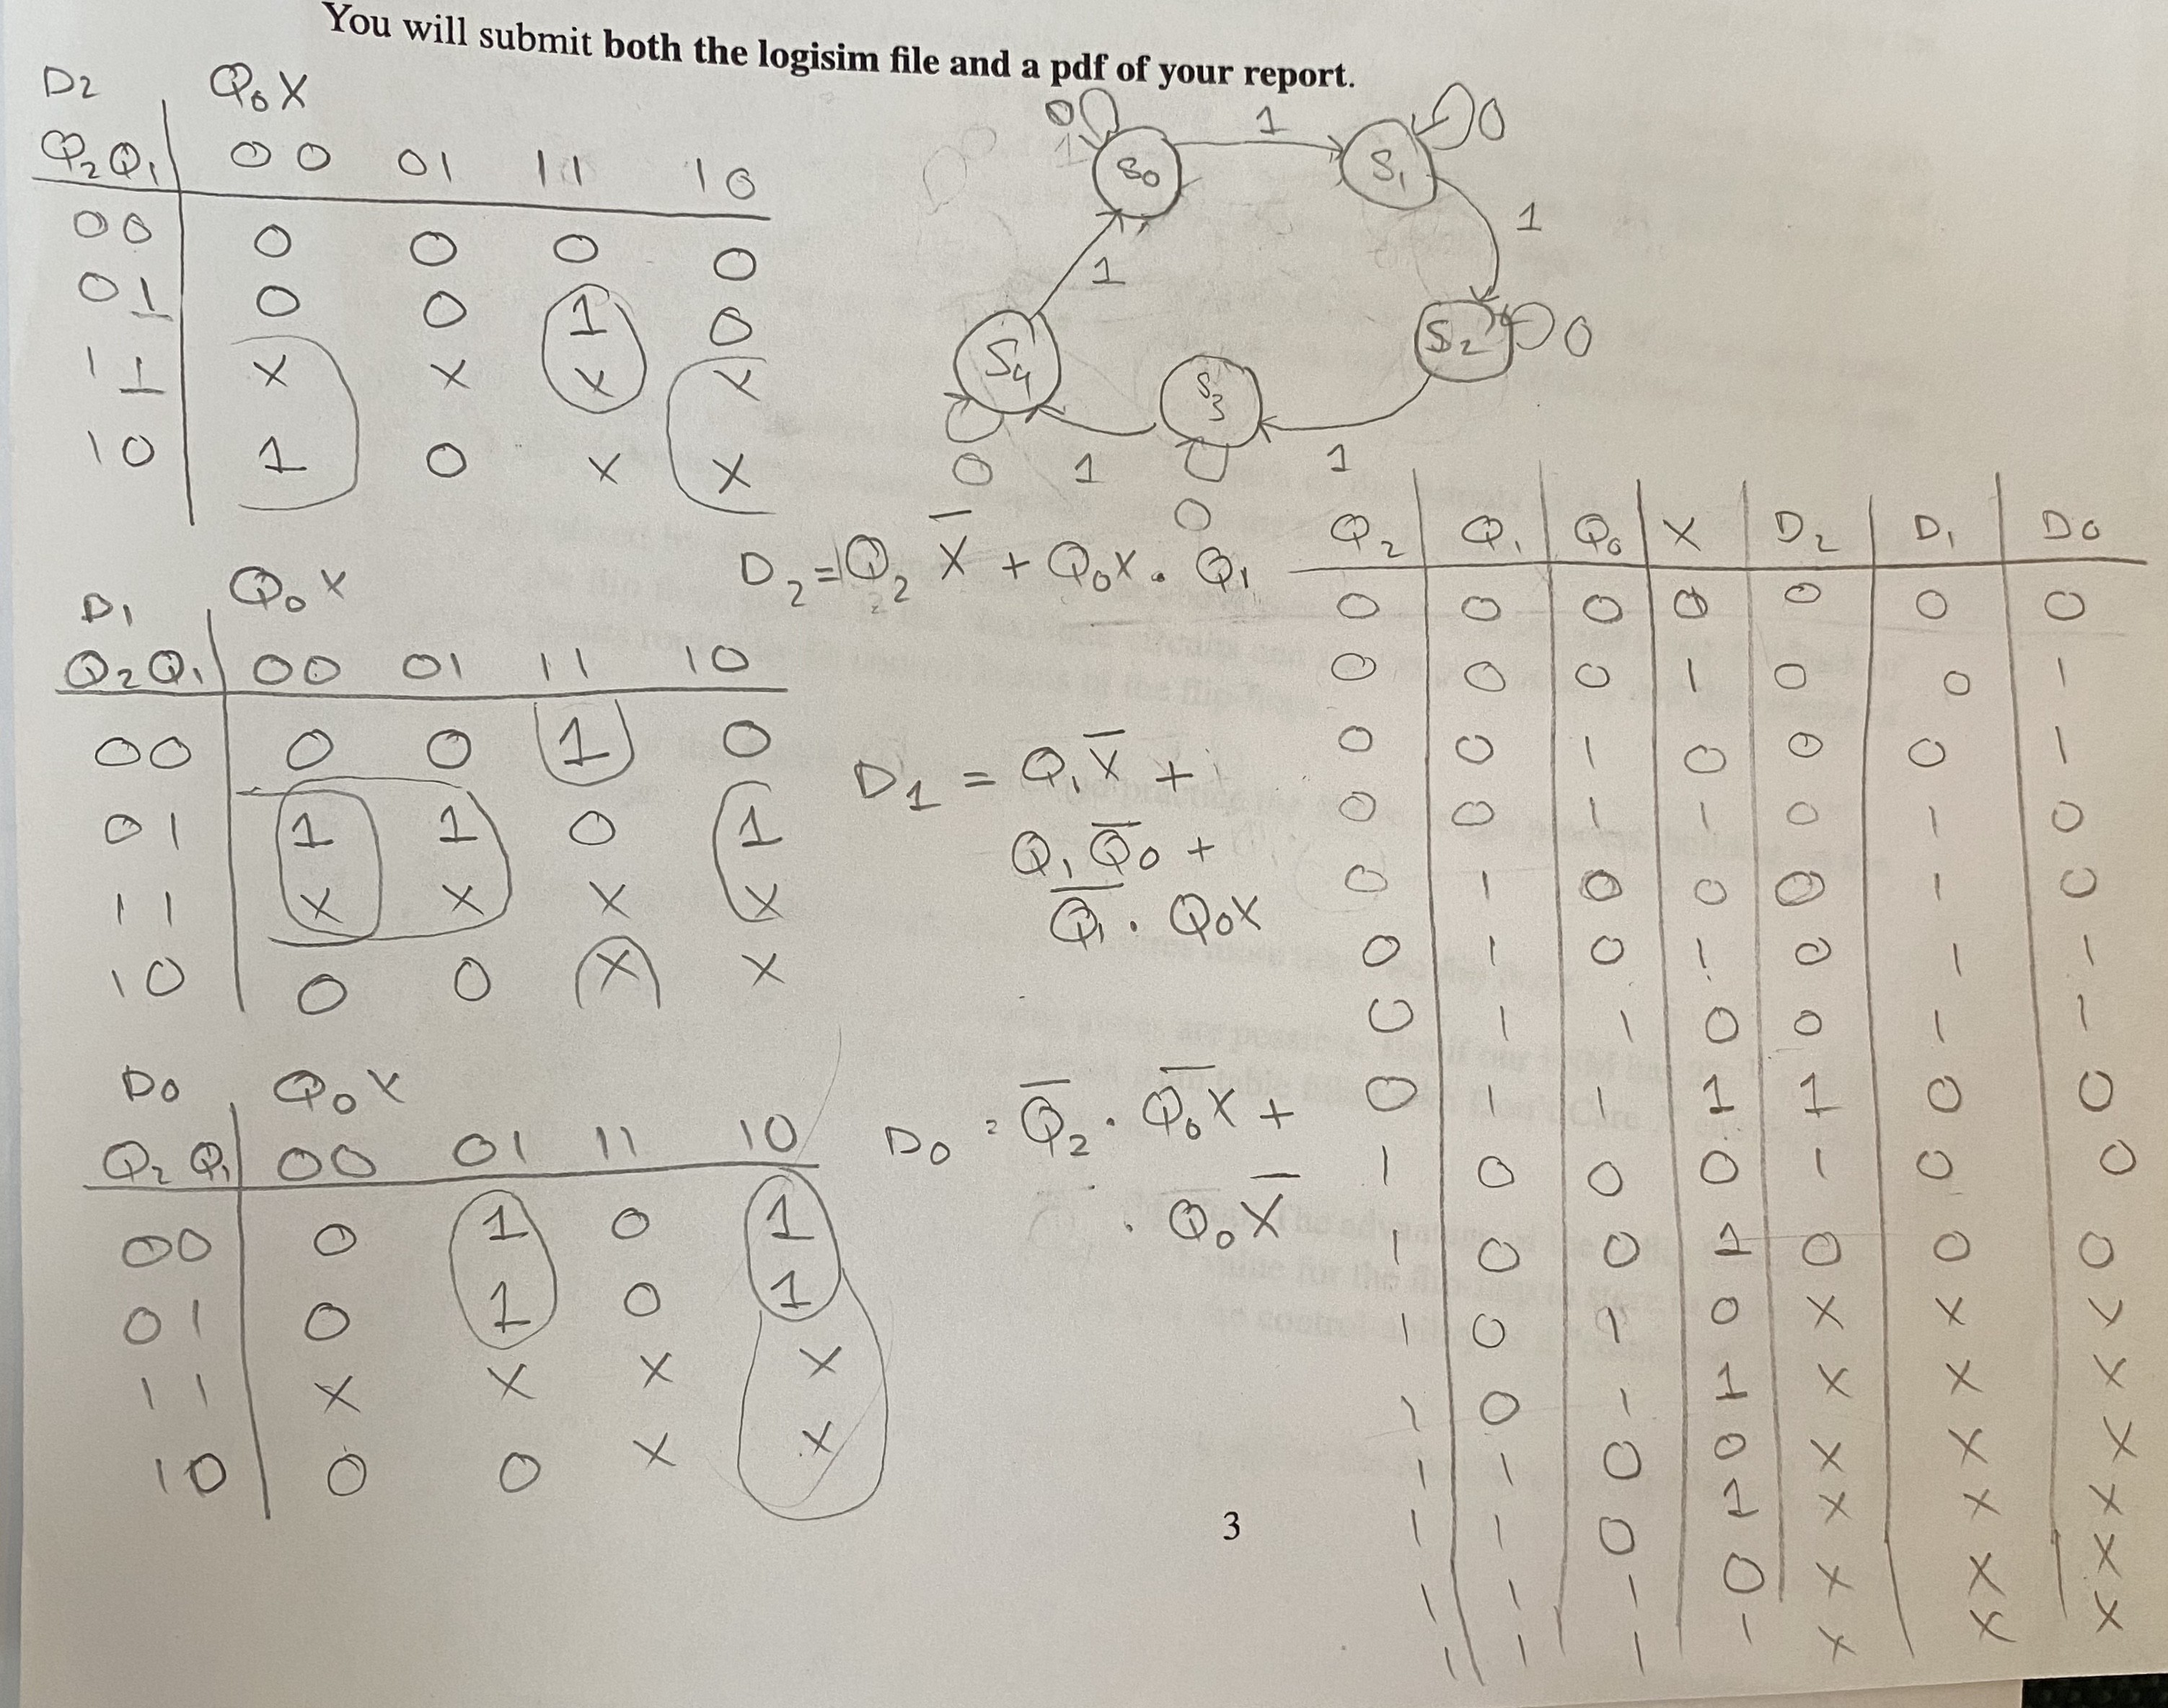 You will submit both the logisim file and a pdf of your report.
D2 Q0X
Q2Q1 00 01 11 10
00 0 0 0 0
01 0 0 1 0
11 X X X X
10 1 0 X X
0 S0 1 S1 0
1
S2 0
1
S4 S3
0 1 0 1
D2 = Q2 X̅ + Q0X . Q1
D1 Q0X
Q2Q1 00 01 11 10
00 0 0 1 0
01 1 1 0 1
11 X X X X
10 0 0 X X
D1 = Q1 X̅ +
Q1 Q̅0 +
Q̅1 . Q0X
D0 Q0X
Q2 Q1 00 01 11 10
00 0 1 0 1
01 0 1 0 1
11 X X X X
10 0 0 X X
D0 = Q̅2 . Q̅0X +
. Q0X̅
Q2 Q1 Q0 X D2 D1 D0
0 0 0 0 0 0 0
0 0 0 1 0 0 1
0 0 1 0 0 0 1
0 0 1 1 0 1 0
0 1 0 0 0 1 0
0 1 0 1 0 1 1
0 1 1 0 0 1 1
0 1 1 1 1 0 0
1 0 0 0 1 0 0
1 0 0 1 0 0 0
1 0 1 0 X X X
1 0 1 1 X X X
1 1 0 0 X X X
1 1 0 1 X X X
1 1 1 0 X X X
1 1 1 1 X X X
3